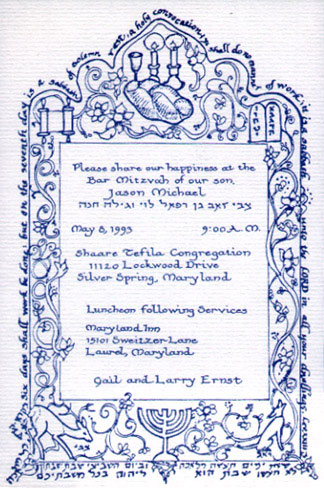 six days shall work be done; but on the seventh day is a sabbath of solemn rest, a holy convocation; shall do no manner of work; it is a sabbath unto the LORD in all your dwellings.
Please share our happiness at the
Bar Mitzvah of our son,
Jason Michael
צבי זאב בן רפאל לוי וגילה חנה
May 8, 1993 9:00 A.M.
Shaare Tefila Congregation
11120 Lockwood Drive
Silver Spring, Maryland
Luncheon following Services
Maryland Inn
15101 Sweitzer Lane
Laurel, Maryland
Gail and Larry Ernst
ששת ימים תעשה מלאכה וביום השביעי שבת שבתון
שבת הוא ליהוה בכל